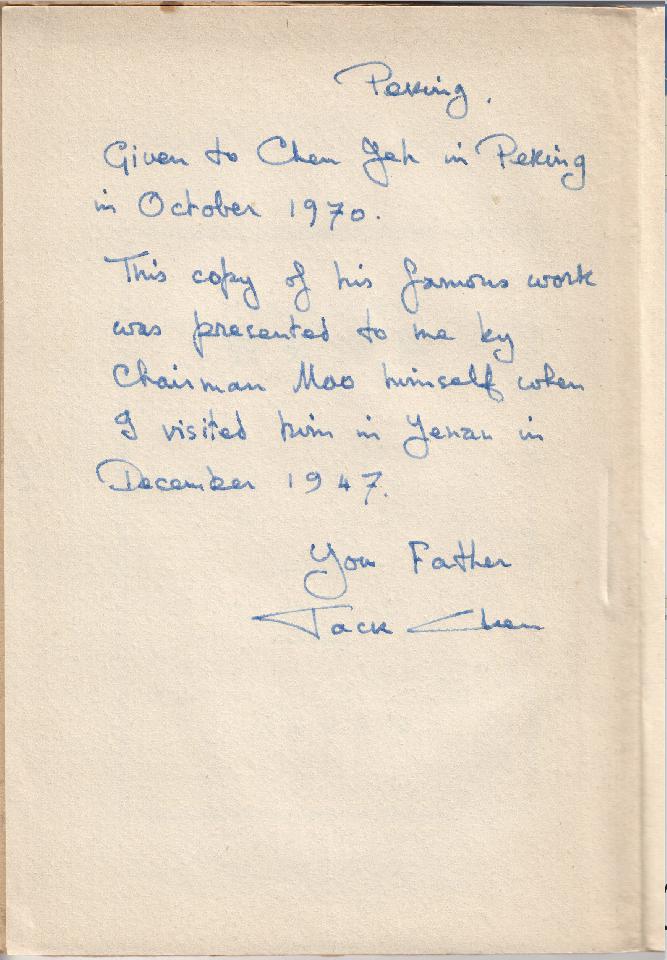 Peking.
Given to Chen Yeh in Peking
in October 1970.
This copy of his famous work
was presented to me by
Chairman Mao himself when
I visited him in Yenan in
December 1947.
Your Father
Jack Chen